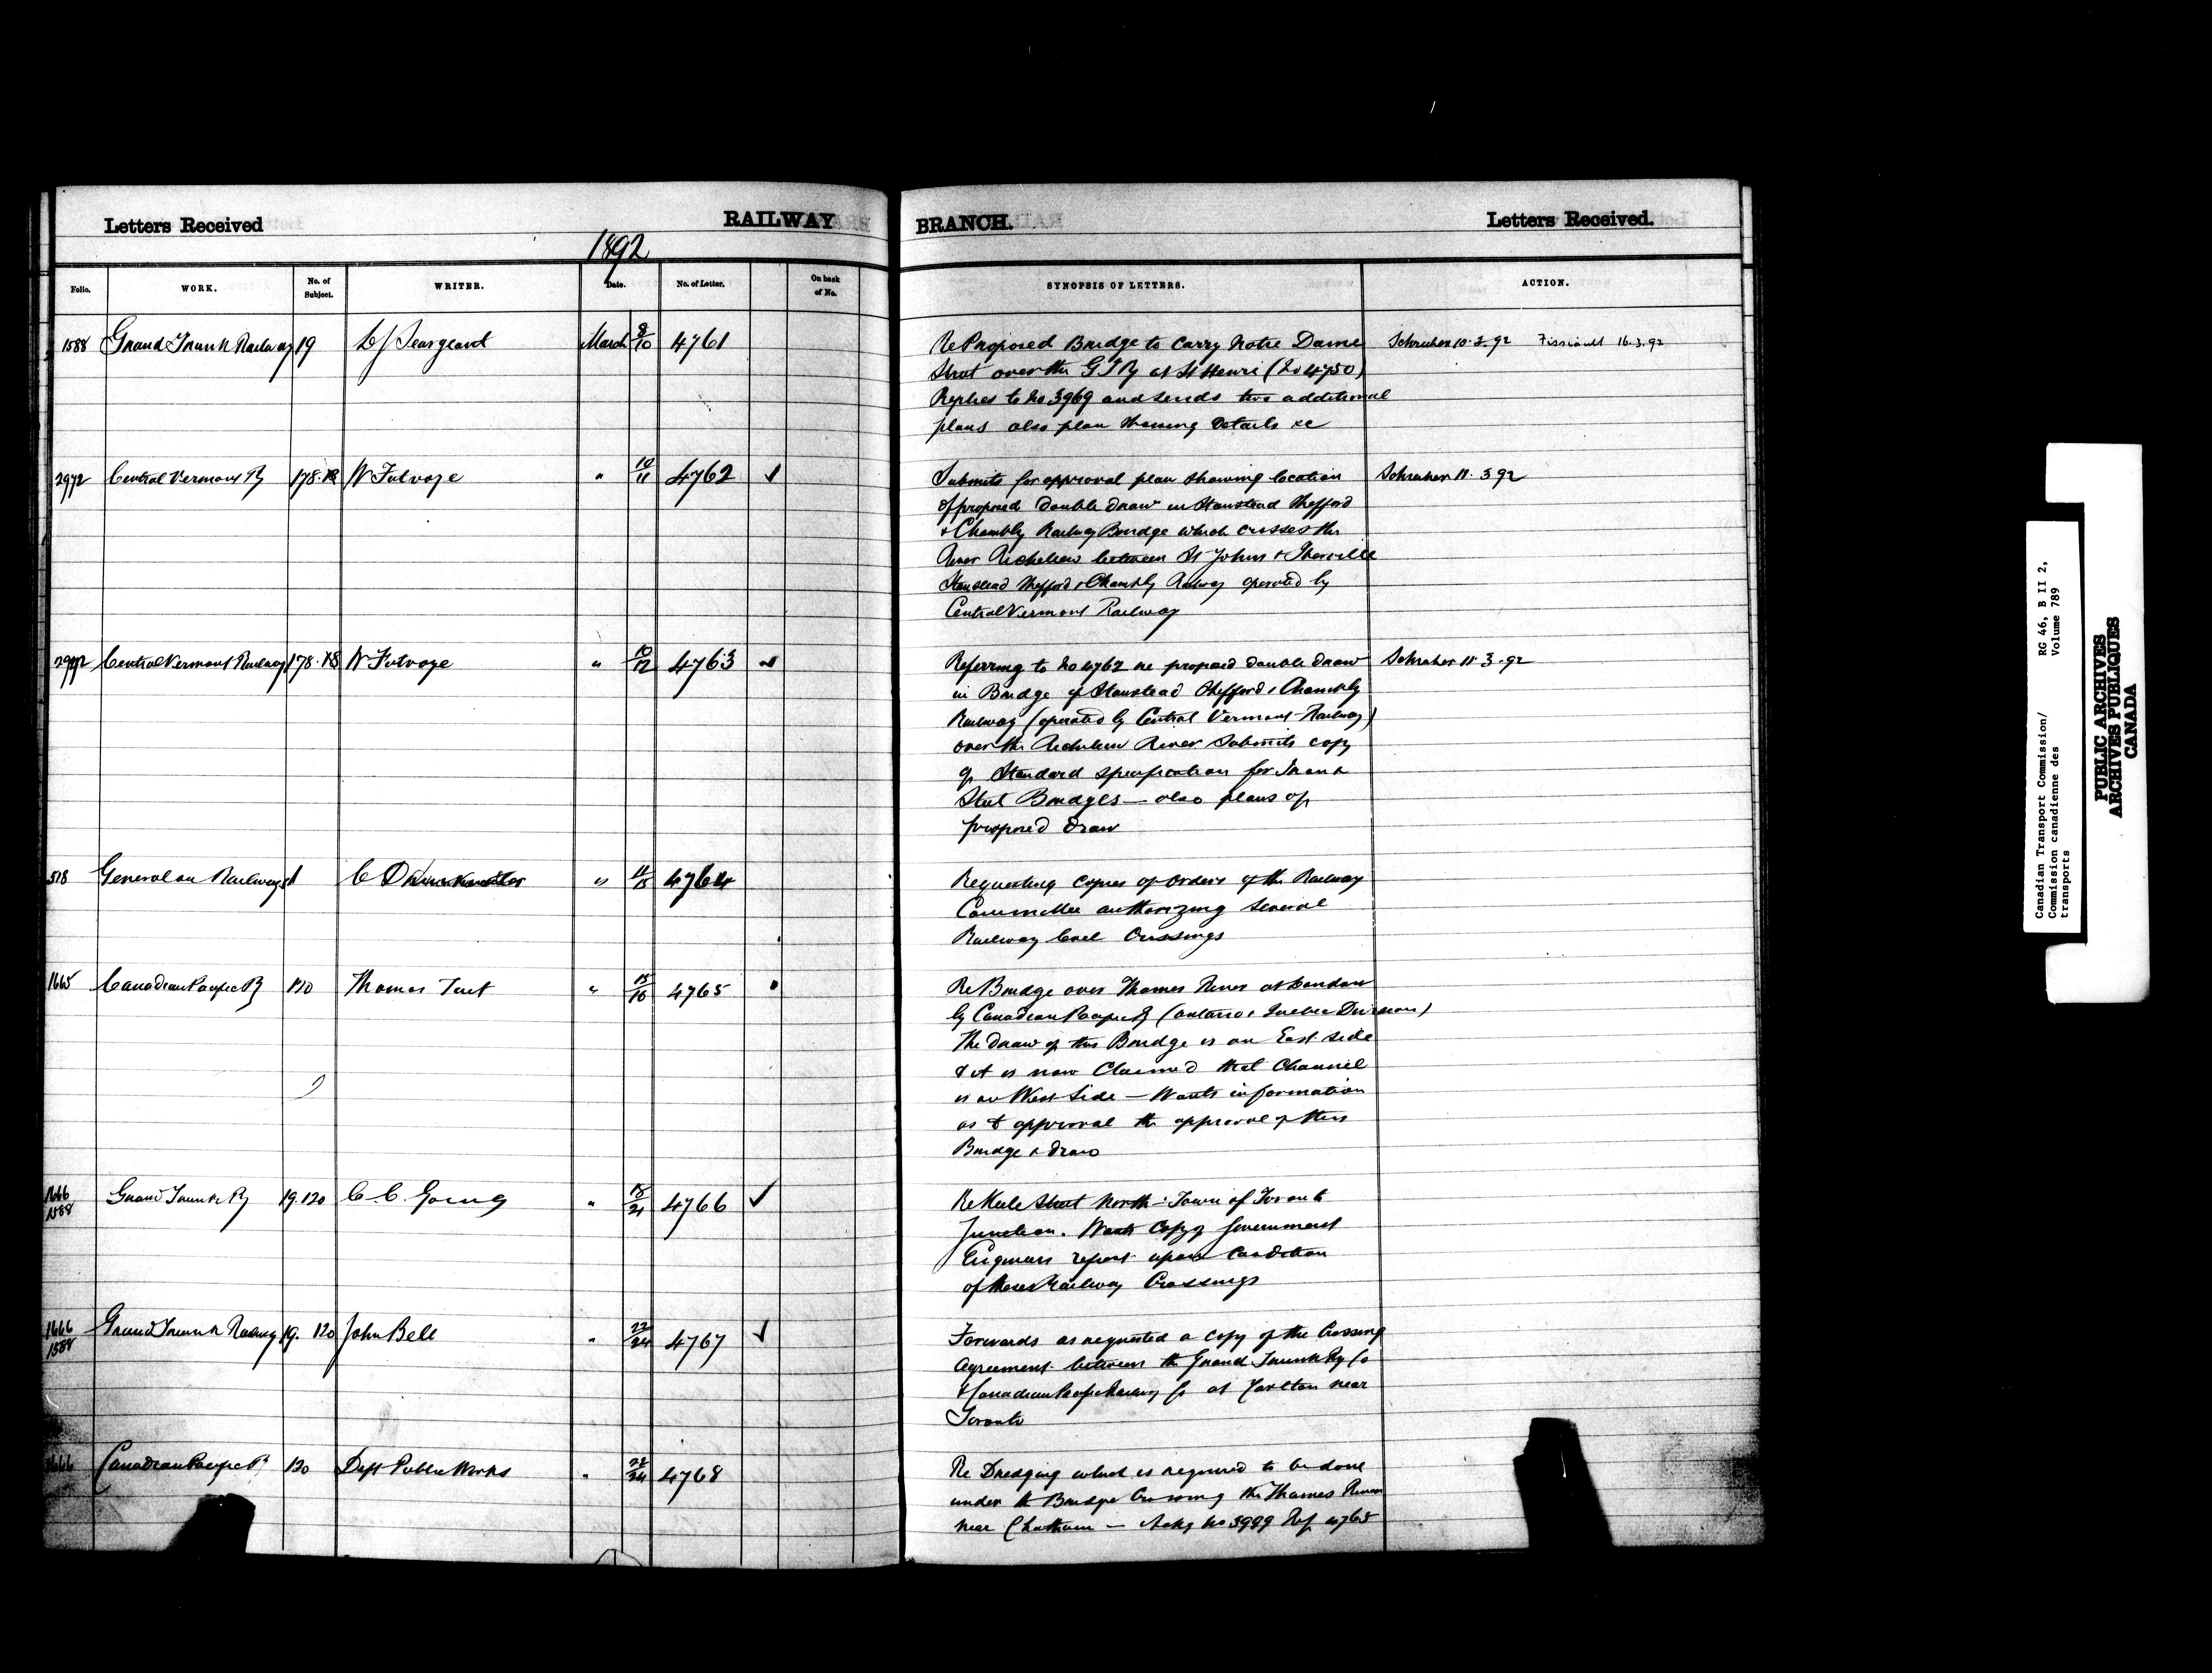 Letters Received
RAILWAY
BRANCH.
Letters Received.
1892
Folio.
WORK.
No. of Subject.
WRITER.
Date.
No. of Letter.
On back of No.
SYNOPSIS OF LETTERS.
ACTION.
1588 Grand Trunk Railway 19 L J Seargeant March 8/10 4761
Re Proposed Bridge to carry Notre Dame
Street over the G T Ry at St Henri (No 4750)
Replies to No 3969 and sends two additional
plans also plan showing Details &c
Schreiber 10.3.92 16.3.92
2972 Central Vermont Ry 178. W Futvoye " 10/11 4762 ✓
Submits for approval plan showing location
of proposed double draw in Stanstead Shefford
& Chambly Railway Bridge which crosses the
River Richelieu between St Johns & Iberville
Stanstead Shefford & Chambly Railway operated by
Central Vermont Railway
Schreiber 11.3.92
2972 Central Vermont Railway 178. W Futvoye " 10/12 4763 ✓
Referring to No 4762 re proposed double draw
in Bridge of Stanstead Shefford & Chambly
Railway (operated by Central Vermont Railway)
over the Richelieu River Submits copy
of Standard specification for Iron &
Steel Bridges — also plans of
proposed draw
Schreiber 11.3.92
518 General on Railways 1 C " 4764
Requesting copies of orders of the Railway
Committee authorizing several
Railway level Crossings
1665 Canadian Pacific Ry 120 Thomas Tait " 15/16 4765
Re Bridge over Thames River at London
by Canadian Pacific Ry (Ontario & Quebec Division)
The draw of this Bridge is on East side
& it is now Claimed that Channel
is on West Side — Wants information
as to approval the approval of this
Bridge & draw
1666 1588 Grand Trunk Ry 19.120 C. C. Going " 18/21 4766 ✓
Re Keele Street North - Town of Toronto
Junction. Wants Copy of Government
Engineers report upon Condition
of these Railway Crossings
1666 1588 Grand Trunk Railway 19. 120 John Bell " 22/24 4767 ✓
Forwards as requested a copy of the Crossing
Agreement between the Grand Trunk Ry Co
& Canadian Pacific Railway Co at Carlton near
Toronto
1666 Canadian Pacific Ry 120 Dept Public Works " 22/24 4768
Re Dredging which is required to be done
under the Bridge Crossing the Thames River
near Chatham — Ackg No 3999 Ref 4765
Canadian Transport Commission/ RG 46, B II 2,
Commission canadienne des Volume 789
transports
PUBLIC ARCHIVES
ARCHIVES PUBLIQUES
CANADA